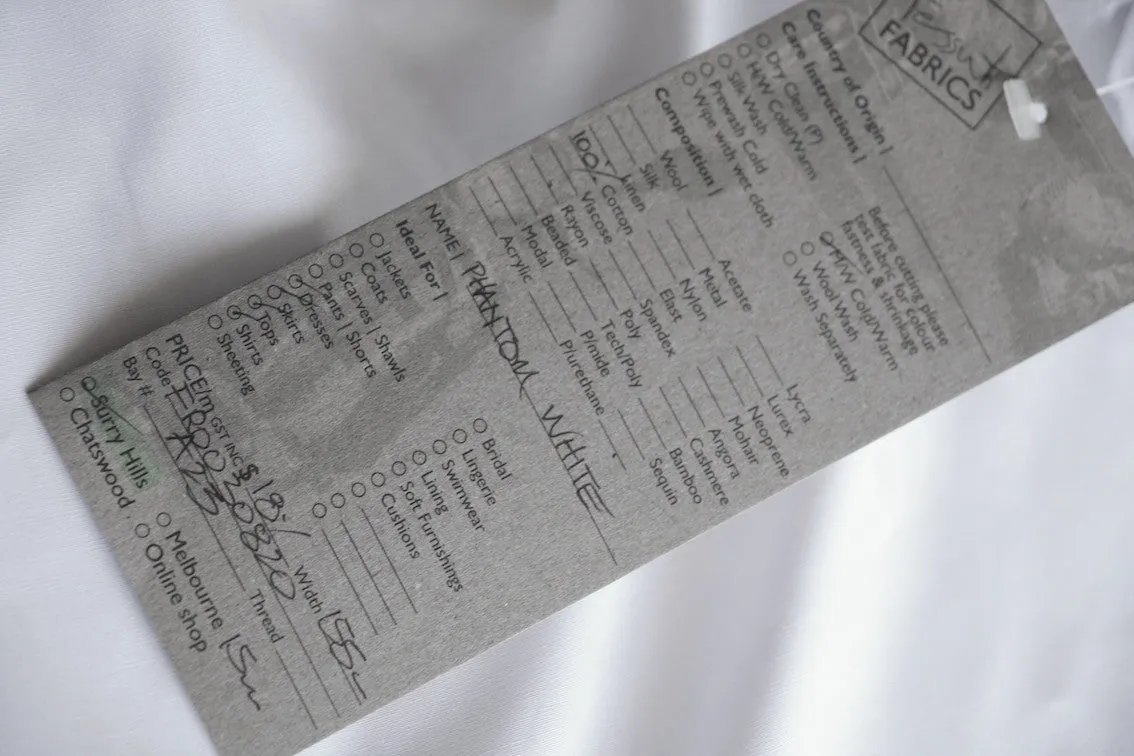 Tessuti
FABRICS
Country of Origin |
Care Instructions |
Before cutting please
test fabric for colour
fastness & shrinkage
Dry Clean (P)
H/W Cold/Warm
Silk Wash
Prewash Cold
Wipe with wet cloth
M/W Cold/Warm
Wool Wash
Wash Separately
Composition |
Wool
Silk
Linen
100% Cotton
Viscose
Rayon
Beaded
Modal
Acrylic
Acetate
Metal
Nylon
Elast
Spandex
Poly
Tech/Poly
P/mide
P/urethane
Lycra
Lurex
Neoprene
Mohair
Angora
Cashmere
Bamboo
Sequin
NAME | PHANTOM WHITE
Ideal For |
Jackets
Coats
Scarves | Shawls
Pants | Shorts
Dresses
Skirts
Tops
Shirts
Sheeting
Bridal
Lingerie
Swimwear
Lining
Soft Furnishings
Cushions
PRICE/m GST INC $ 18-/ Width 155
Code Thread
Bay # A23
Surry Hills
Chatswood
Melbourne
Online shop
15m